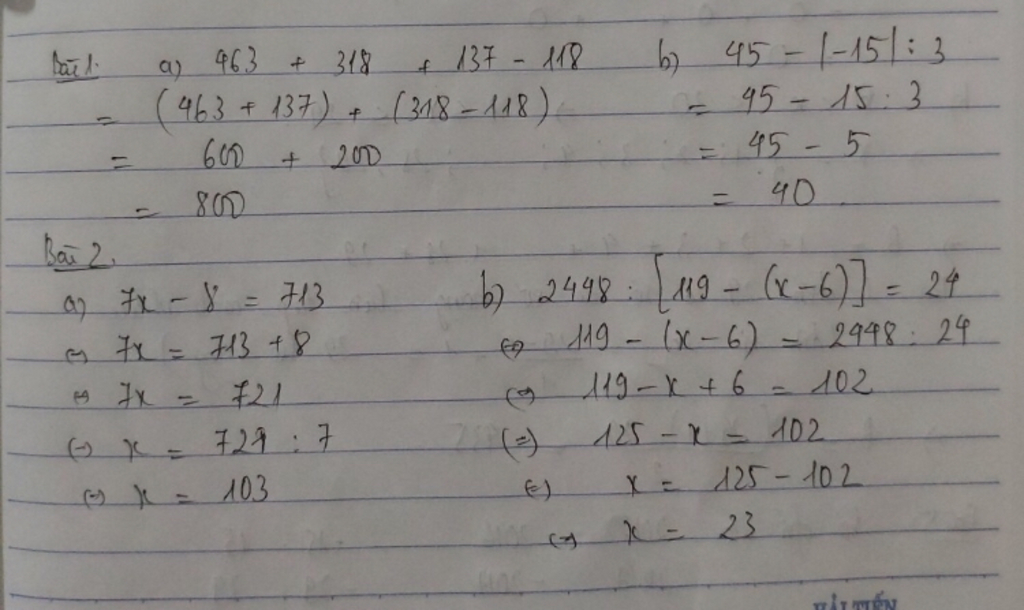 Bài 1. a) 463 + 318 + 137 - 118 b) 45 - |-15| : 3
= (463 + 137) + (318 - 118) = 45 - 15 : 3
= 600 + 200 = 45 - 5
= 800 = 40
Bài 2.
a) 7x - 8 = 713 b) 2448 : [119 - (x - 6)] = 24
⇔ 7x = 713 + 8 ⇔ 119 - (x - 6) = 2448 : 24
⇔ 7x = 721 ⇔ 119 - x + 6 = 102
⇔ x = 721 : 7 ⇔ 125 - x = 102
⇔ x = 103 ⇔ x = 125 - 102
⇔ x = 23
HẢI TIẾN